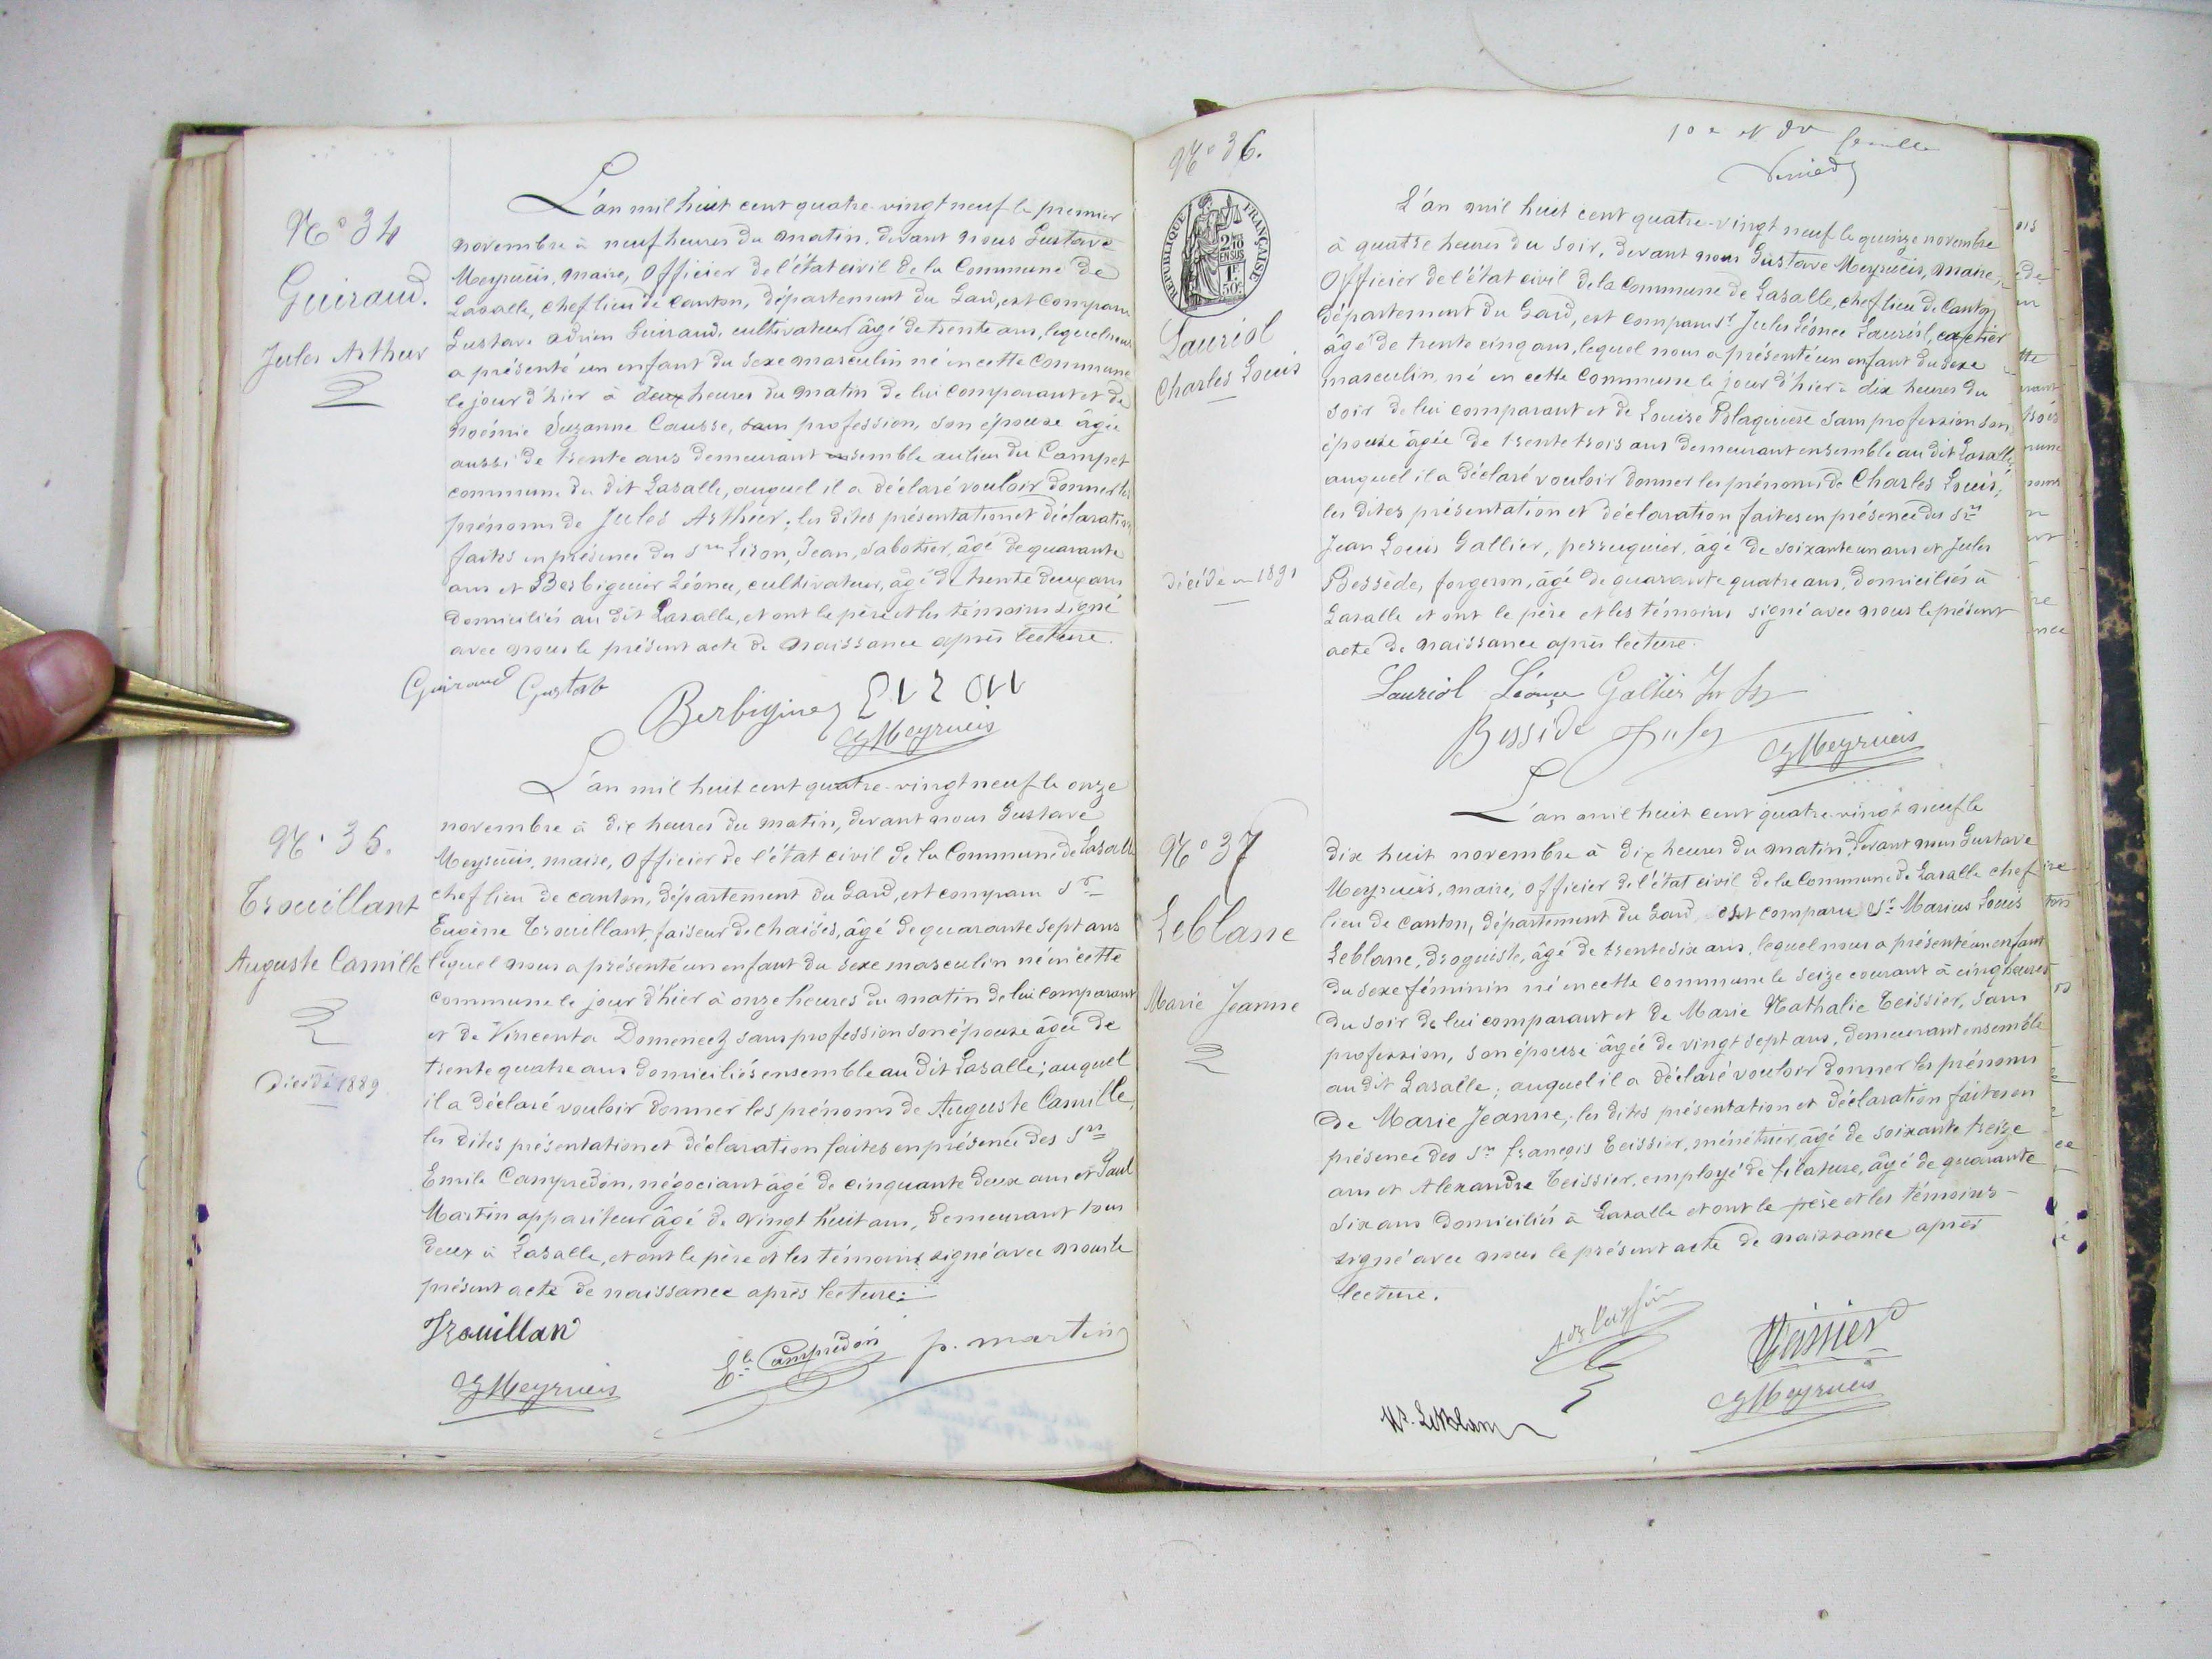 N° 34
Guiraud.
Jules Arthur
L'an mil huit cent quatre-vingt neuf le premier
novembre à neuf heures du matin, devant nous Gustave
Meyrueis, maire, Officier de l'état civil de la Commune de
Lasalle, chef lieu de canton, département du Gard, est comparu
Gustave Adrien Guiraud, cultivateur âgé de trente ans, lequel nous
a présenté un enfant du sexe masculin né en cette commune
le jour d'hier à deux heures du matin de lui comparant et de
Noémie Suzanne Causse, sans profession, son épouse âgée
aussi de trente ans demeurant ensemble au lieu du Campet
commune du dit Lasalle, auquel il a déclaré vouloir donner les
prénoms de Jules Arthur; les dites présentation et déclaration
faites en présence du Srs Liron, Jean, sabotier, âgé de quarante
ans et Berbiguier Léonce, cultivateur, âgé de trente deux ans
domiciliés au dit Lasalle, et ont le père et les témoins signé
avec nous le présent acte de naissance après lecture.
Guiraud Gustave
Berbiguier Liron
G Meyrueis
N° 35.
Trouillant
Auguste Camille
Décédé 1889
L'an mil huit cent quatre-vingt neuf le onze
novembre à dix heures du matin, devant nous Gustave
Meyrueis, maire, Officier de l'état civil de la Commune de Lasalle
chef lieu de canton, département du Gard, est comparu Sr
Eugène Trouillant faiseur de chaises, âgé de quarante sept ans
lequel nous a présenté un enfant du sexe masculin né en cette
commune le jour d'hier à onze heures du matin de lui comparant
et de Vincenta Domenech sans profession son épouse âgée de
trente quatre ans domiciliés ensemble au dit Lasalle; auquel
il a déclaré vouloir donner les prénoms de Auguste Camille,
les dites présentation et déclaration faites en présence des Srs
Emile Campredon, négociant âgé de cinquante deux ans et Paul
Martin appariteur âgé de vingt huit ans, demeurant tous
deux à Lasalle, et ont le père et les témoins signé avec nous le
présent acte de naissance après lecture.
Trouillan
Ele Campredon p. martin
G Meyrueis
10e et dre feuille
N° 36.
RÉPUBLIQUE FRANÇAISE
2/10
EN SUS
1F
50c
Lauriol
Charles Louis
Décédé en 1891
L'an mil huit cent quatre-vingt neuf le quinze novembre
à quatre heures du soir, devant nous Gustave Meyrueis, maire,
Officier de l'état civil de la Commune de Lasalle, chef lieu de Canton
département du Gard, est comparu Sr Jules Léonce Lauriol, cafetier
âgé de trente cinq ans, lequel nous a présenté un enfant du sexe
masculin, né en cette Commune le jour d'hier à dix heures du
soir de lui comparant et de Louise Blaquière sans profession son
épouse âgée de trente trois ans demeurant ensemble au dit Lasalle,
auquel il a déclaré vouloir donner les prénoms de Charles Louis;
les dites présentation et déclaration faites en présence des Srs
Jean Louis Galtier, perruquier, âgé de soixante un ans et Jules
Bessède, forgeron, âgé de quarante quatre ans, domiciliés à
Lasalle et ont le père et les témoins signé avec nous le présent
acte de naissance après lecture.
Lauriol Léonce Galtier
Bessède Jules G Meyrueis
N° 37
Leblanc
Marie Jeanne
L'an mil huit cent quatre-vingt neuf le
dix huit novembre à dix heures du matin, devant nous Gustave
Meyrueis, maire, Officier de l'état civil de la Commune de Lasalle chef
lieu de canton, département du Gard, est comparu Sr Marius Louis
Leblanc, droguiste, âgé de trente six ans, lequel nous a présenté un enfant
du sexe féminin né en cette commune le seize courant à cinq heures
du soir de lui comparant et de Marie Nathalie Teissier, sans
profession, son épouse âgée de vingt sept ans, demeurant ensemble
au dit Lasalle; auquel il a déclaré vouloir donner les prénoms
de Marie Jeanne; les dites présentation et déclaration faites en
présence des Srs François Teissier, ménétrier, âgé de soixante treize
ans et Alexandre Teissier, employé de filature, âgé de quarante
six ans domiciliés à Lasalle et ont le père et les témoins
signé avec nous le présent acte de naissance après
lecture.
Teissier
G Meyrueis
Ms. Leblanc